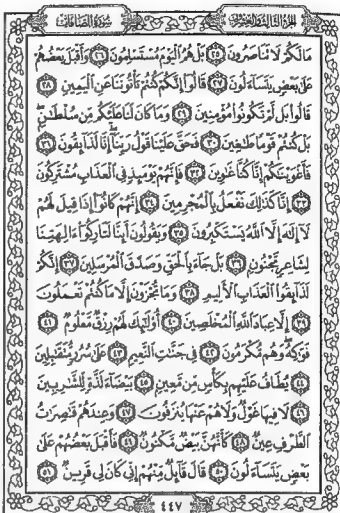 الجزء الثالث والعشرون
سورة الصافات
مَا لَكُمْ لَا تَنَاصَرُونَ ٢٥ بَلْ هُمُ الْيَوْمَ مُسْتَسْلِمُونَ ٢٦ وَأَقْبَلَ بَعْضُهُمْ
عَلَىٰ بَعْضٍ يَتَسَاءَلُونَ ٢٧ قَالُوا إِنَّكُمْ كُنتُمْ تَأْتُونَنَا عَنِ الْيَمِينِ ٢٨
قَالُوا بَل لَّمْ تَكُونُوا مُؤْمِنِينَ ٢٩ وَمَا كَانَ لَنَا عَلَيْكُم مِّن سُلْطَانٍ
بَلْ كُنتُمْ قَوْمًا طَاغِينَ ٣٠ فَحَقَّ عَلَيْنَا قَوْلُ رَبِّنَا إِنَّا لَذَائِقُونَ ٣١
فَأَغْوَيْنَاكُمْ إِنَّا كُنَّا غَاوِينَ ٣٢ فَإِنَّهُمْ يَوْمَئِذٍ فِي الْعَذَابِ مُشْتَرِكُونَ
٣٣ إِنَّا كَذَٰلِكَ نَفْعَلُ بِالْمُجْرِمِينَ ٣٤ إِنَّهُمْ كَانُوا إِذَا قِيلَ لَهُمْ
لَا إِلَٰهَ إِلَّا اللَّهُ يَسْتَكْبِرُونَ ٣٥ وَيَقُولُونَ أَئِنَّا لَتَارِكُو آلِهَتِنَا
لِشَاعِرٍ مَّجْنُونٍ ٣٦ بَلْ جَاءَ بِالْحَقِّ وَصَدَّقَ الْمُرْسَلِينَ ٣٧ إِنَّكُمْ
لَذَائِقُو الْعَذَابِ الْأَلِيمِ ٣٨ وَمَا تُجْزَوْنَ إِلَّا مَا كُنتُمْ تَعْمَلُونَ
٣٩ إِلَّا عِبَادَ اللَّهِ الْمُخْلَصِينَ ٤٠ أُولَٰئِكَ لَهُمْ رِزْقٌ مَّعْلُومٌ ٤١
فَوَاكِهُ وَهُم مُّكْرَمُونَ ٤٢ فِي جَنَّاتِ النَّعِيمِ ٤٣ عَلَىٰ سُرُرٍ مُّتَقَابِلِينَ
٤٤ يُطَافُ عَلَيْهِم بِكَأْسٍ مِّن مَّعِينٍ ٤٥ بَيْضَاءَ لَذَّةٍ لِّلشَّارِبِينَ
٤٦ لَا فِيهَا غَوْلٌ وَلَا هُمْ عَنْهَا يُنزَفُونَ ٤٧ وَعِندَهُمْ قَاصِرَاتُ
الطَّرْفِ عِينٌ ٤٨ كَأَنَّهُنَّ بَيْضٌ مَّكْنُونٌ ٤٩ فَأَقْبَلَ بَعْضُهُمْ عَلَىٰ
بَعْضٍ يَتَسَاءَلُونَ ٥٠ قَالَ قَائِلٌ مِّنْهُمْ إِنِّي كَانَ لِي قَرِينٌ ٥١
٤٤٧